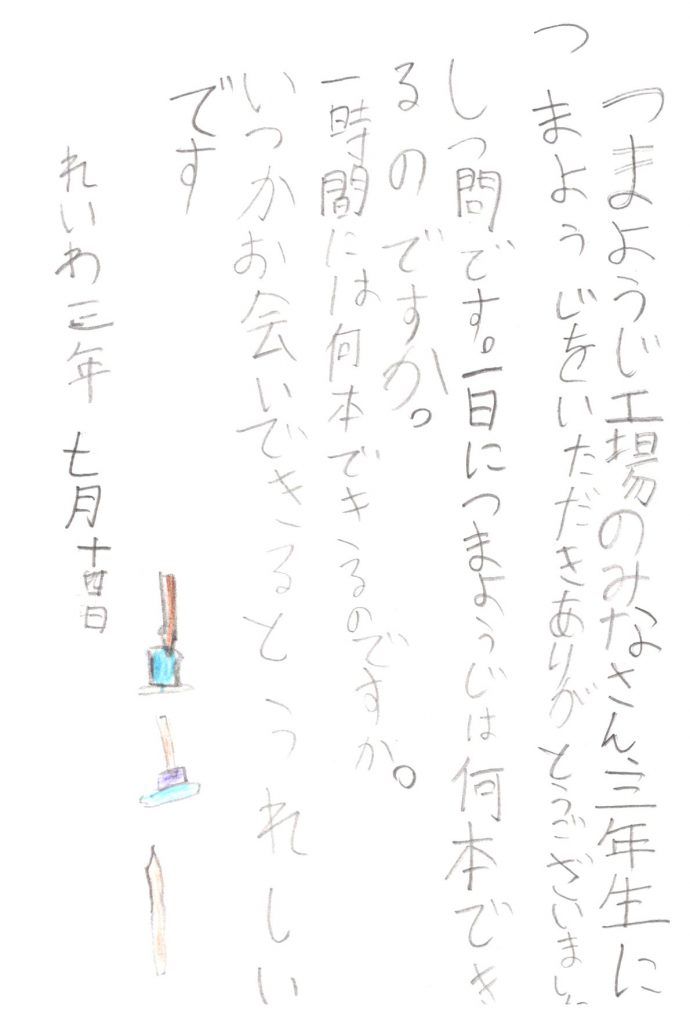 つまようじ工場のみなさん、三年生に
つまようじをいただきありがとうございました
しつ問です。一日につまようじは何本でき
るのですか。
一時間には何本できるのですか。
いつかお会いできるとうれしい
です
れいわ三年 七月十四日